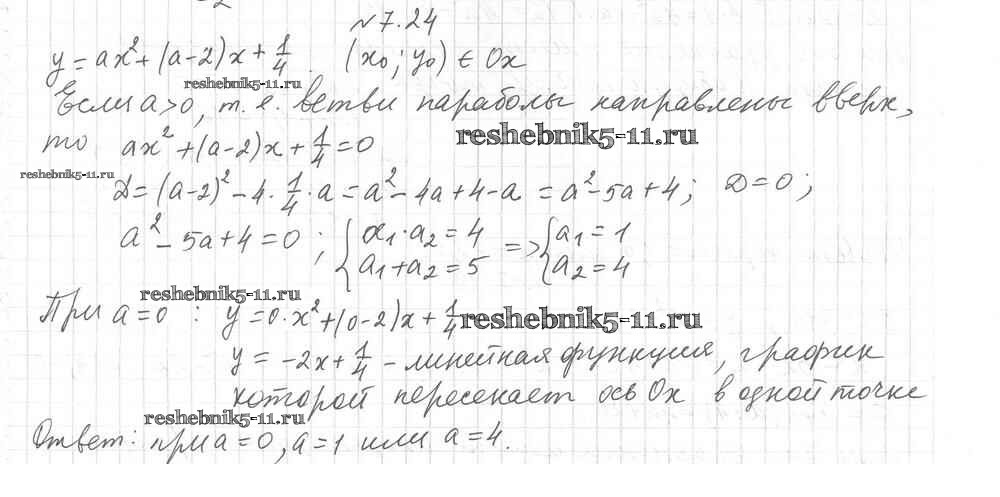 -2
№7.24
y = ax² + (a-2)x + 1/4. (x₀; y₀) ∈ Ox
reshebnik5-11.ru
Если a>0, т.е. ветви параболы направлены вверх,
то ax² + (a-2)x + 1/4 = 0
reshebnik5-11.ru
reshebnik5-11.ru
D = (a-2)² - 4·1/4·a = a² - 4a + 4 - a = a² - 5a + 4; D = 0;
a² - 5a + 4 = 0; { a₁·a₂ = 4 => { a₁ = 1
a₁ + a₂ = 5 a₂ = 4
reshebnik5-11.ru
При a = 0: y = 0·x² + (0-2)x + 1/4
reshebnik5-11.ru
y = -2x + 1/4 - линейная функция, график
которой пересекает ось Ox в одной точке
reshebnik5-11.ru
Ответ: при a = 0, a = 1 или a = 4.